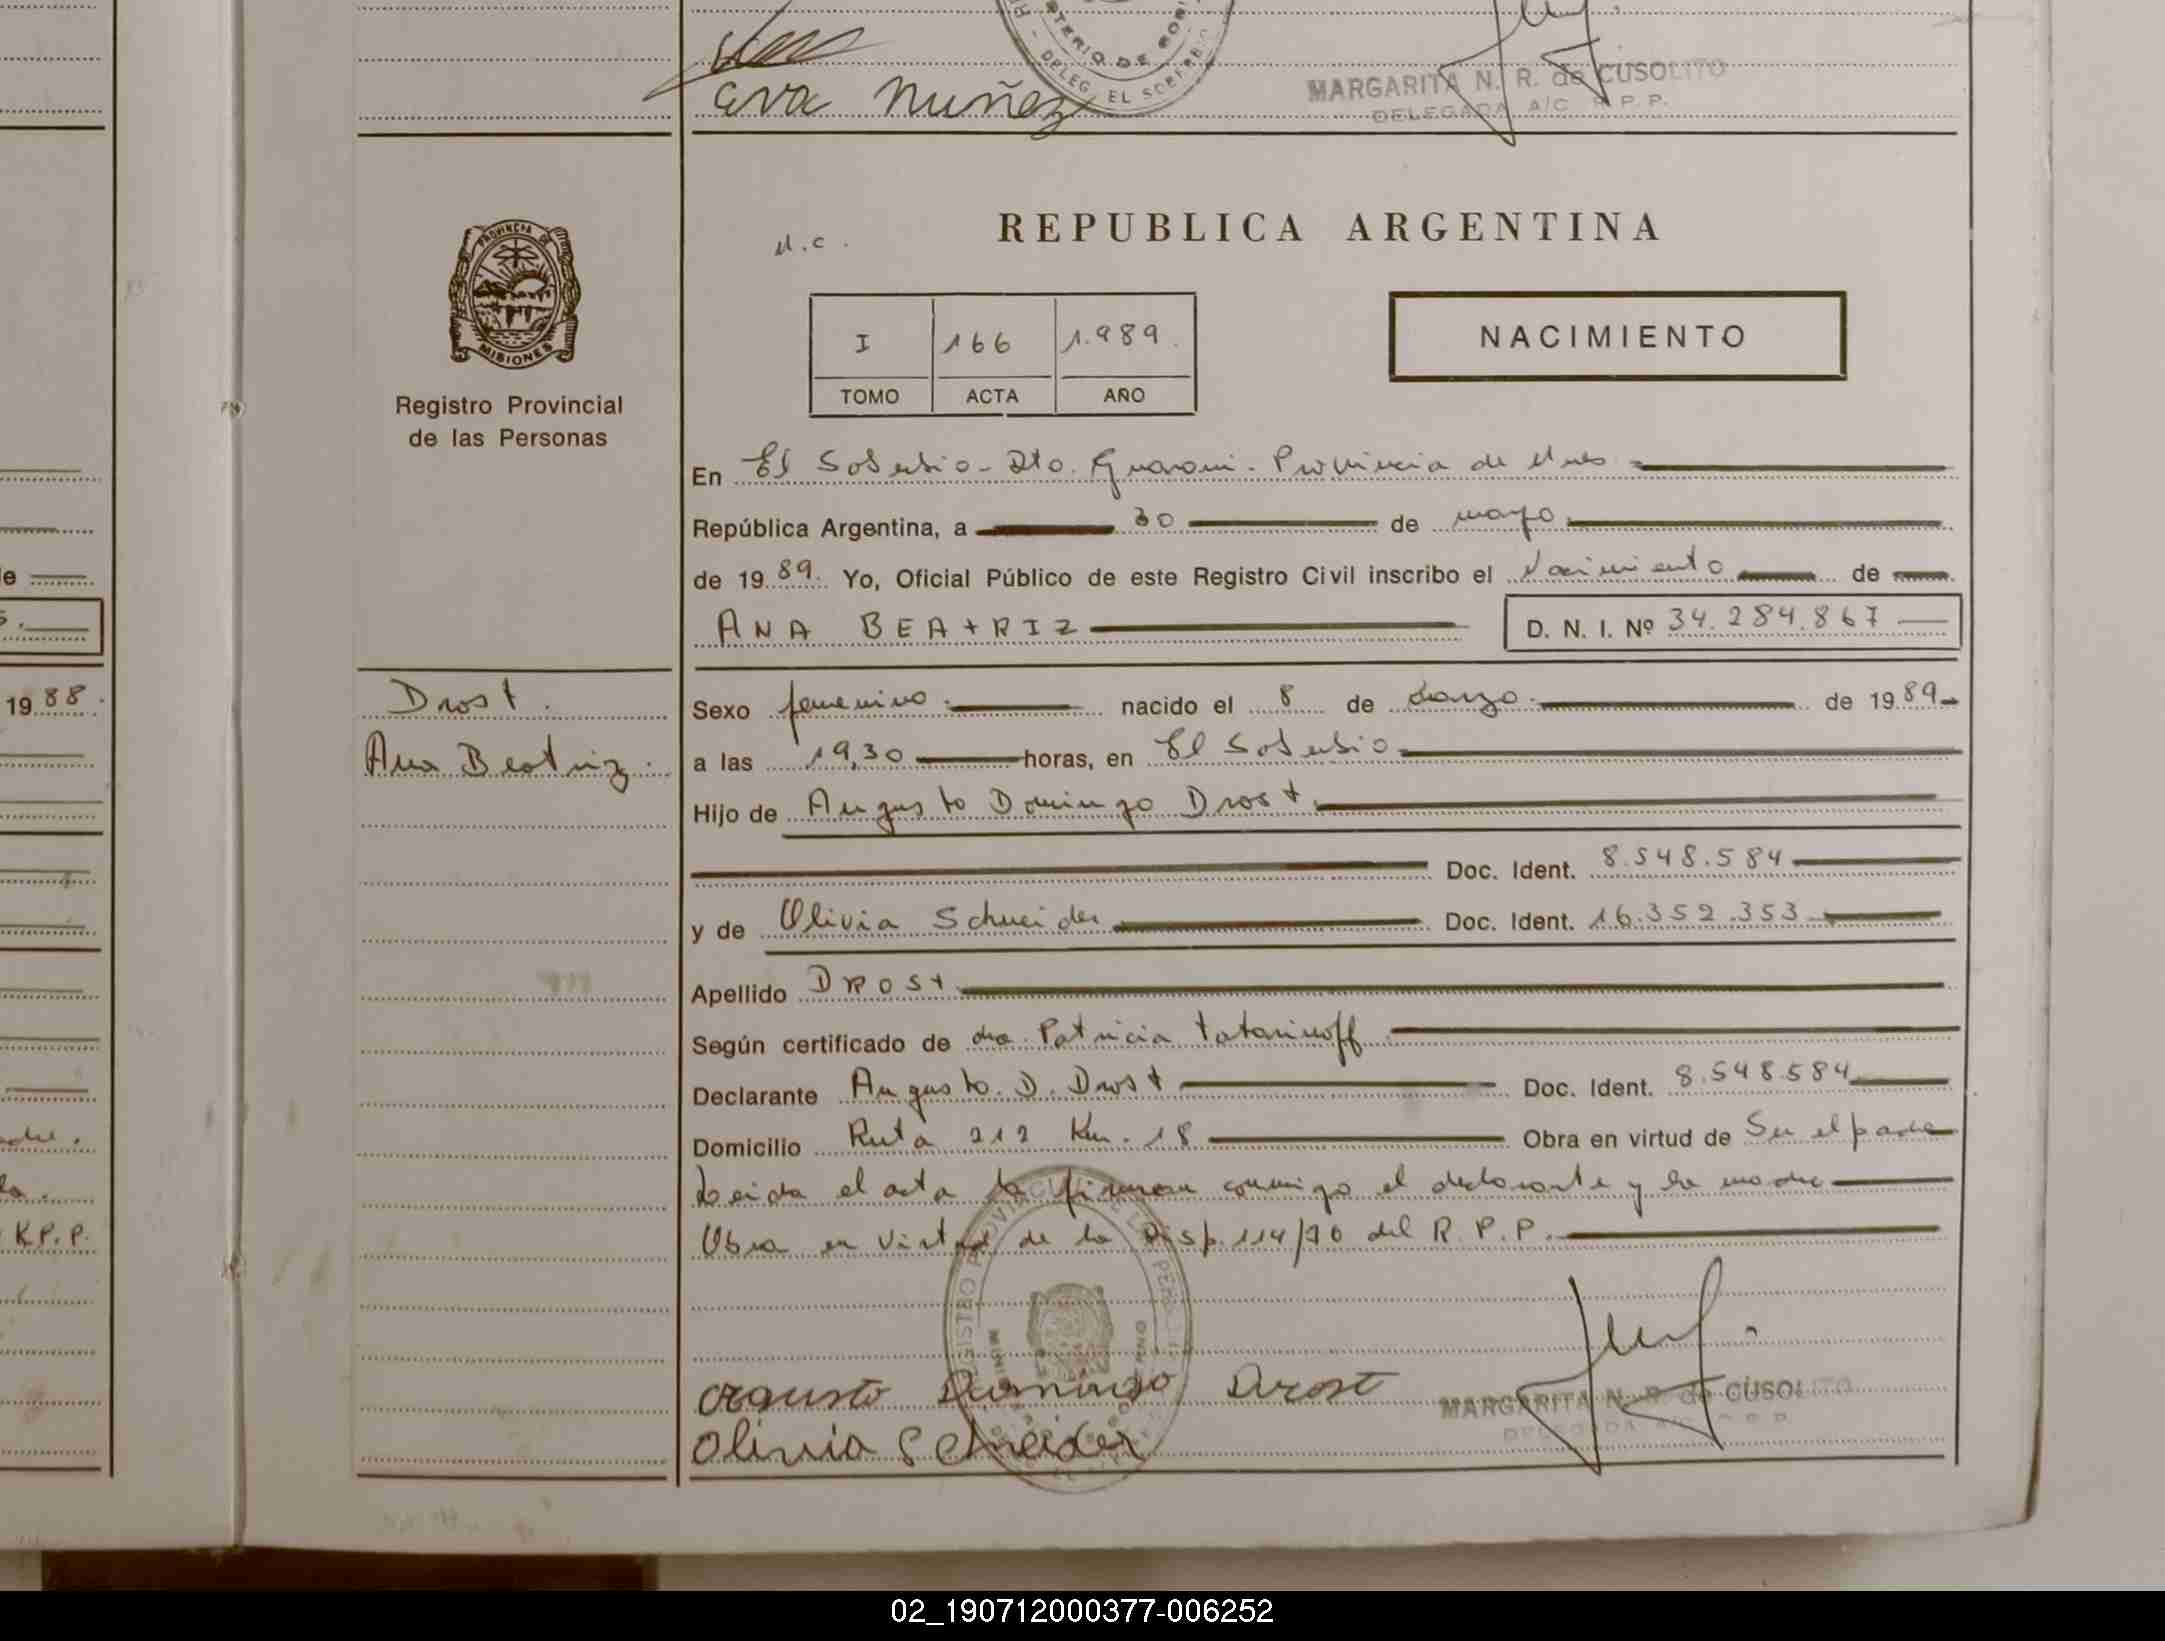 Eva Nuñez
MINISTERIO DE GOBI
DELEG. EL SOBERBIO
MARGARITA N. R. de CUSOLITO
DELEGADA A/C R.P.P.
PROVINCIA DE
MISIONES
Registro Provincial
de las Personas
N.C.
REPUBLICA ARGENTINA
I 166 1.989.
TOMO ACTA AÑO
NACIMIENTO
En El Soberbio - Dto. Guarani - Provincia de Mnes
República Argentina, a 30 de mayo
de 1989. Yo, Oficial Público de este Registro Civil inscribo el Nacimiento de
ANA BEATRIZ
D. N. I. Nº 34.284.867
1988.
Drost.
Ana Beatriz.
Sexo femenino. nacido el 8 de Marzo. de 1989
a las 19,30 horas, en El Soberbio
Hijo de Augusto Domingo Drost
Doc. Ident. 8.548.584
y de Olivia Schneider Doc. Ident. 16.352.353
Apellido DROST
Según certificado de dra. Patricia Tatarinoff
Declarante Augusto. D. Drost Doc. Ident. 8.548.584
Domicilio Ruta 212 Km. 18 Obra en virtud de Ser el padre
Leida el acta la firman conmigo el declarante y la madre
Obra en virtud de la Disp. 114/70 del R. P. P.
Augusto Domingo Drost
Olivia Schneider
MARGARITA N. R. de CUSOLITO
DELEGADA A/C R.P.P.
02_190712000377-006252